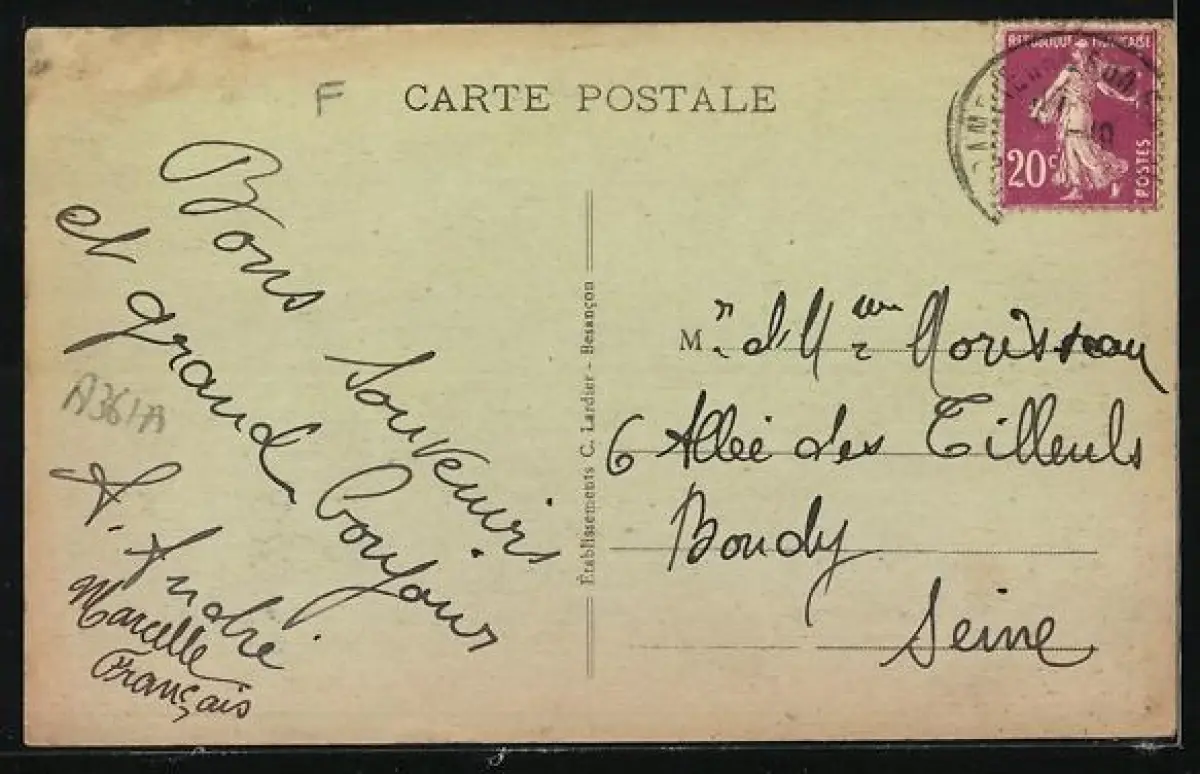 F
CARTE POSTALE
REPUBLIQUE FRANÇAISE
20c
POSTES
Bons Souvenirs
et grand bonjour
A. André
Marcelle
Français
A361A
Établissements C. Lardier - Besançon
Mr et Mme Morisseau
6 Allée des Tilleuls
Bondy
Seine